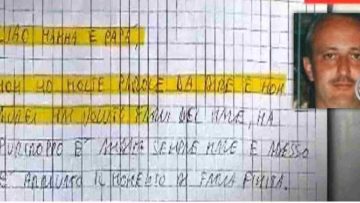 CIAO MAMMA E PAPÀ,
NON HO MOLTE PAROLE DA DIRE E NON
DEL MALE, MA
PURTROPPO È ANDATA SEMPRE MALE E ADESSO
È ARRIVATO IL MOMENTO DI FARLA FINITA.